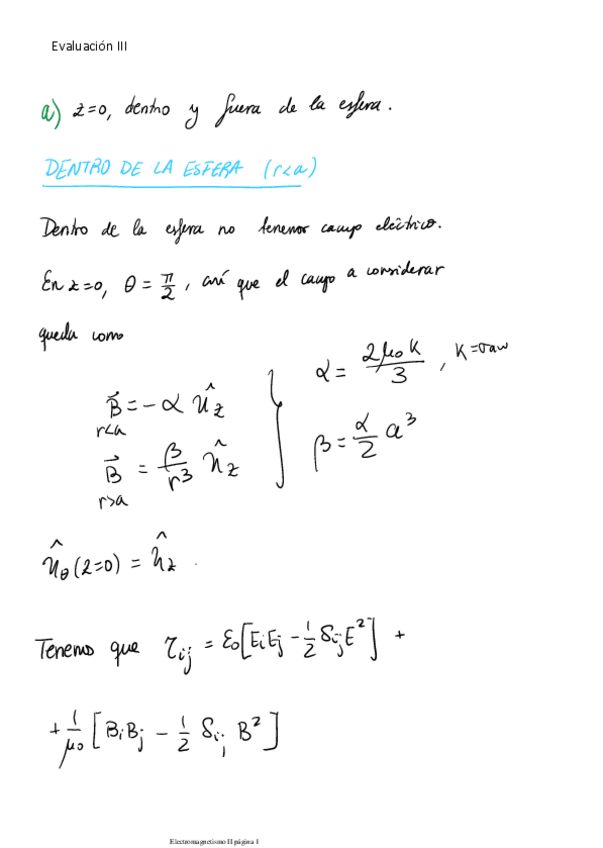 Evaluación III
a) z=0, dentro y fuera de la esfera.
DENTRO DE LA ESFERA (r<a)
Dentro de la esfera no tenemos campo eléctrico.
En z=0, θ = π/2, así que el campo a considerar
queda como
B⃗ = -α û_z
r<a
B⃗ = β/r³ û_z
r>a
α = 2μ₀K/3 , K=σaω
β = α/2 a³
û_θ (z=0) = û_z .
Tenemos que τ_ij = ε₀[E_iE_j - 1/2 δ_ij E²] +
+ 1/μ₀ [B_iB_j - 1/2 δ_ij B²]
Electromagnetismo II página 1